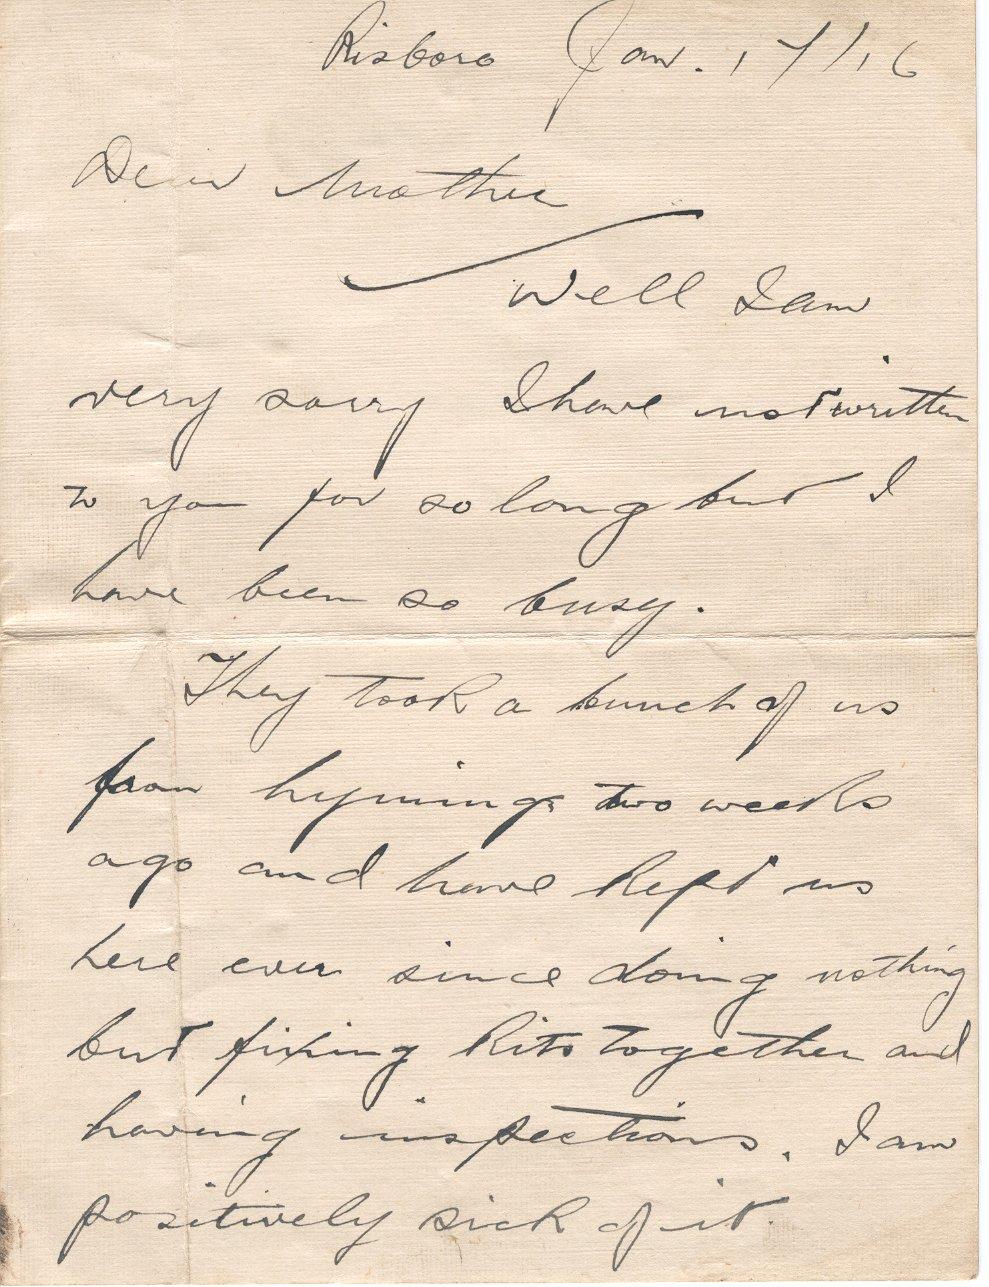 Risboro Jan. 17/16
Dear Mother
Well I am
very sorry I have not written
to you for so long but I
have been so busy.
They took a bunch of us
from two weeks
ago and have kept us
here ever since doing nothing
but fixing kits together and
having inspections. I am
positively sick of it.